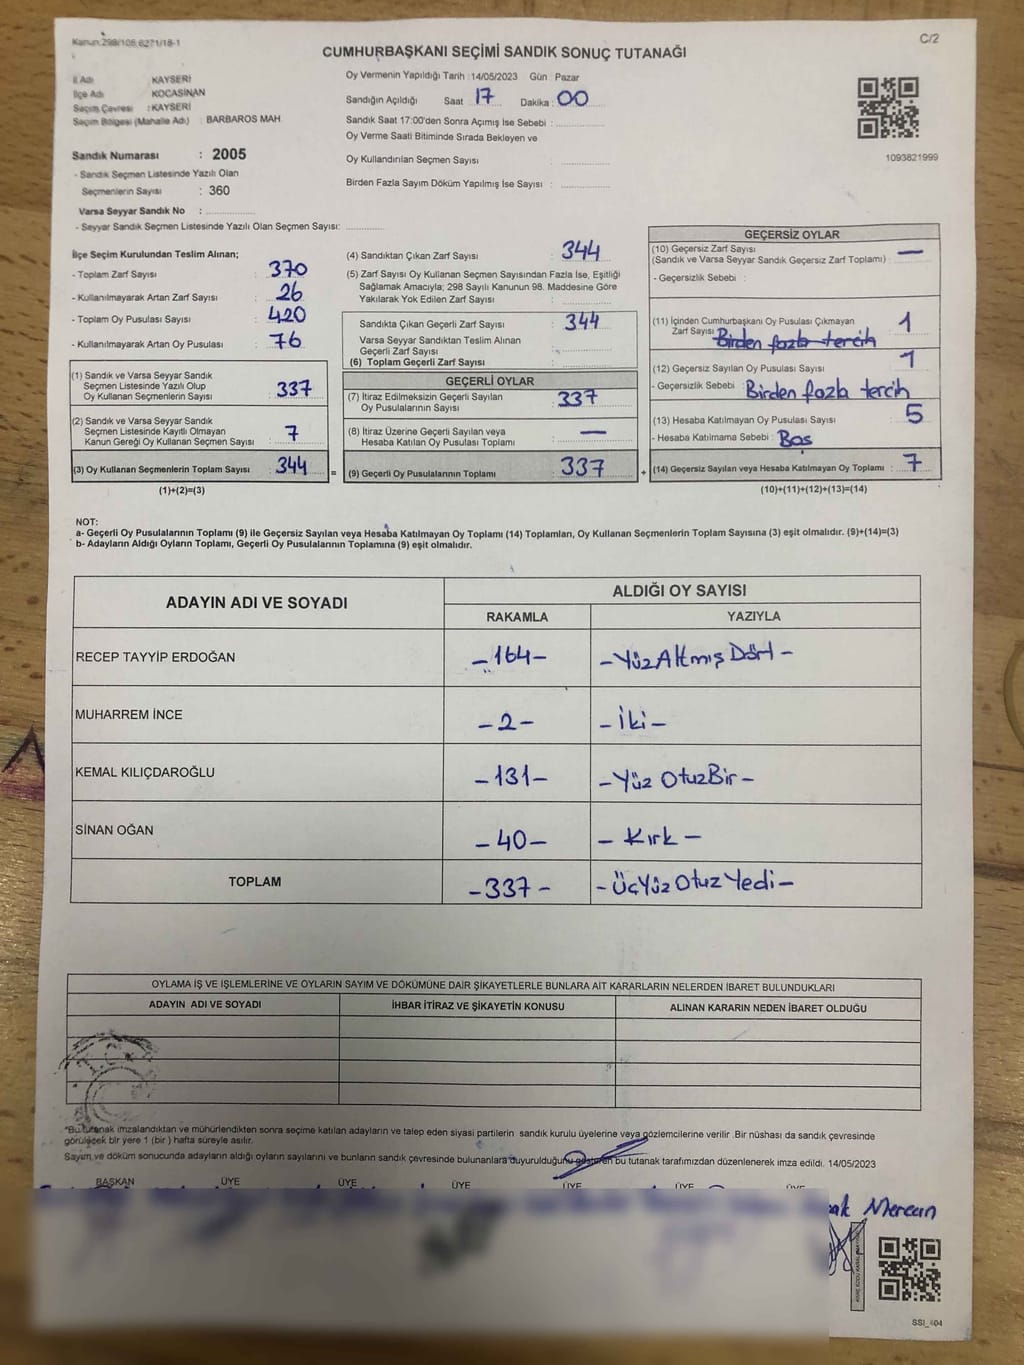 Kanun:298/105,6271/18-1
C/2
CUMHURBAŞKANI SEÇİMİ SANDIK SONUÇ TUTANAĞI
İl Adı KAYSERİ
İlçe Adı KOCASİNAN
Seçim Çevresi : KAYSERİ
Seçim Bölgesi (Mahalle Adı) : BARBAROS MAH
Sandık Numarası : 2005
- Sandık Seçmen Listesinde Yazılı Olan
Seçmenlerin Sayısı : 360
Varsa Seyyar Sandık No : ..............
- Seyyar Sandık Seçmen Listesinde Yazılı Olan Seçmen Sayısı: ............
Oy Vermenin Yapıldığı Tarih : 14/05/2023 Gün : Pazar
Sandığın Açıldığı Saat 17 Dakika : 00
Sandık Saat 17:00'den Sonra Açımış İse Sebebi : ..............
Oy Verme Saati Bitiminde Sırada Bekleyen ve
Oy Kullandırılan Seçmen Sayısı : ..............
Birden Fazla Sayım Döküm Yapılmış İse Sayısı : ..............
1093821999
İlçe Seçim Kurulundan Teslim Alınan;
- Toplam Zarf Sayısı : 370
- Kullanılmayarak Artan Zarf Sayısı : 26
- Toplam Oy Pusulası Sayısı : 420
- Kullanılmayarak Artan Oy Pusulası : 76
(1) Sandık ve Varsa Seyyar Sandık
Seçmen Listesinde Yazılı Olup
Oy Kullanan Seçmenlerin Sayısı : 337
(2) Sandık ve Varsa Seyyar Sandık
Seçmen Listesinde Kayıtlı Olmayan
Kanun Gereği Oy Kullanan Seçmen Sayısı : 7
(3) Oy Kullanan Seçmenlerin Toplam Sayısı : 344
(1)+(2)=(3)
(4) Sandıktan Çıkan Zarf Sayısı : 344
(5) Zarf Sayısı Oy Kullanan Seçmen Sayısından Fazla İse, Eşitliği
Sağlamak Amacıyla; 298 Sayılı Kanunun 98. Maddesine Göre
Yakılarak Yok Edilen Zarf Sayısı : ..............
Sandıkta Çıkan Geçerli Zarf Sayısı : 344
Varsa Seyyar Sandıktan Teslim Alınan
Geçerli Zarf Sayısı : ..............
(6) Toplam Geçerli Zarf Sayısı : ..............
GEÇERLİ OYLAR
(7) İtiraz Edilmeksizin Geçerli Sayılan
Oy Pusulalarının Sayısı : 337
(8) İtiraz Üzerine Geçerli Sayılan veya
Hesaba Katılan Oy Pusulası Toplamı : —
= (9) Geçerli Oy Pusulalarının Toplamı : 337 +
GEÇERSİZ OYLAR
(10) Geçersiz Zarf Sayısı
(Sandık ve Varsa Seyyar Sandık Geçersiz Zarf Toplamı) : —
- Geçersizlik Sebebi :
(11) İçinden Cumhurbaşkanı Oy Pusulası Çıkmayan
Zarf Sayısı : 1
Birden fazla tercih
(12) Geçersiz Sayılan Oy Pusulası Sayısı : 1
- Geçersizlik Sebebi : Birden fazla tercih
(13) Hesaba Katılmayan Oy Pusulası Sayısı : 5
- Hesaba Katılmama Sebebi : Boş
(14) Geçersiz Sayılan veya Hesaba Katılmayan Oy Toplamı : 7
(10)+(11)+(12)+(13)=(14)
NOT:
a- Geçerli Oy Pusulalarının Toplamı (9) ile Geçersiz Sayılan veya Hesaba Katılmayan Oy Toplamı (14) Toplamları, Oy Kullanan Seçmenlerin Toplam Sayısına (3) eşit olmalıdır. (9)+(14)=(3)
b- Adayların Aldığı Oyların Toplamı, Geçerli Oy Pusulalarının Toplamına (9) eşit olmalıdır.
ADAYIN ADI VE SOYADI
ALDIĞI OY SAYISI
RAKAMLA YAZIYLA
RECEP TAYYİP ERDOĞAN -164- -Yüz Altmış Dört-
MUHARREM İNCE -2- -İki-
KEMAL KILIÇDAROĞLU -131- -Yüz Otuz Bir-
SİNAN OĞAN -40- -Kırk-
TOPLAM -337- -Üç Yüz Otuz Yedi-
OYLAMA İŞ VE İŞLEMLERİNE VE OYLARIN SAYIM VE DÖKÜMÜNE DAİR ŞİKAYETLERLE BUNLARA AİT KARARLARIN NELERDEN İBARET BULUNDUKLARI
ADAYIN ADI VE SOYADI İHBAR İTİRAZ VE ŞİKAYETİN KONUSU ALINAN KARARIN NEDEN İBARET OLDUĞU
T.C.
*Bu tutanak imzalandıktan ve mühürlendikten sonra seçime katılan adayların ve talep eden siyasi partilerin sandık kurulu üyelerine veya gözlemcilerine verilir .Bir nüshası da sandık çevresinde
görülecek bir yere 1 (bir ) hafta süreyle asılır.
Sayım ve döküm sonucunda adayların aldığı oyların sayılarını ve bunların sandık çevresinde bulunanlara duyurulduğunu gösteren bu tutanak tarafımızdan düzenlenerek imza edildi. 14/05/2023
BAŞKAN ÜYE ÜYE ÜYE ÜYE ÜYE ÜYE
Mercan
SSI_404